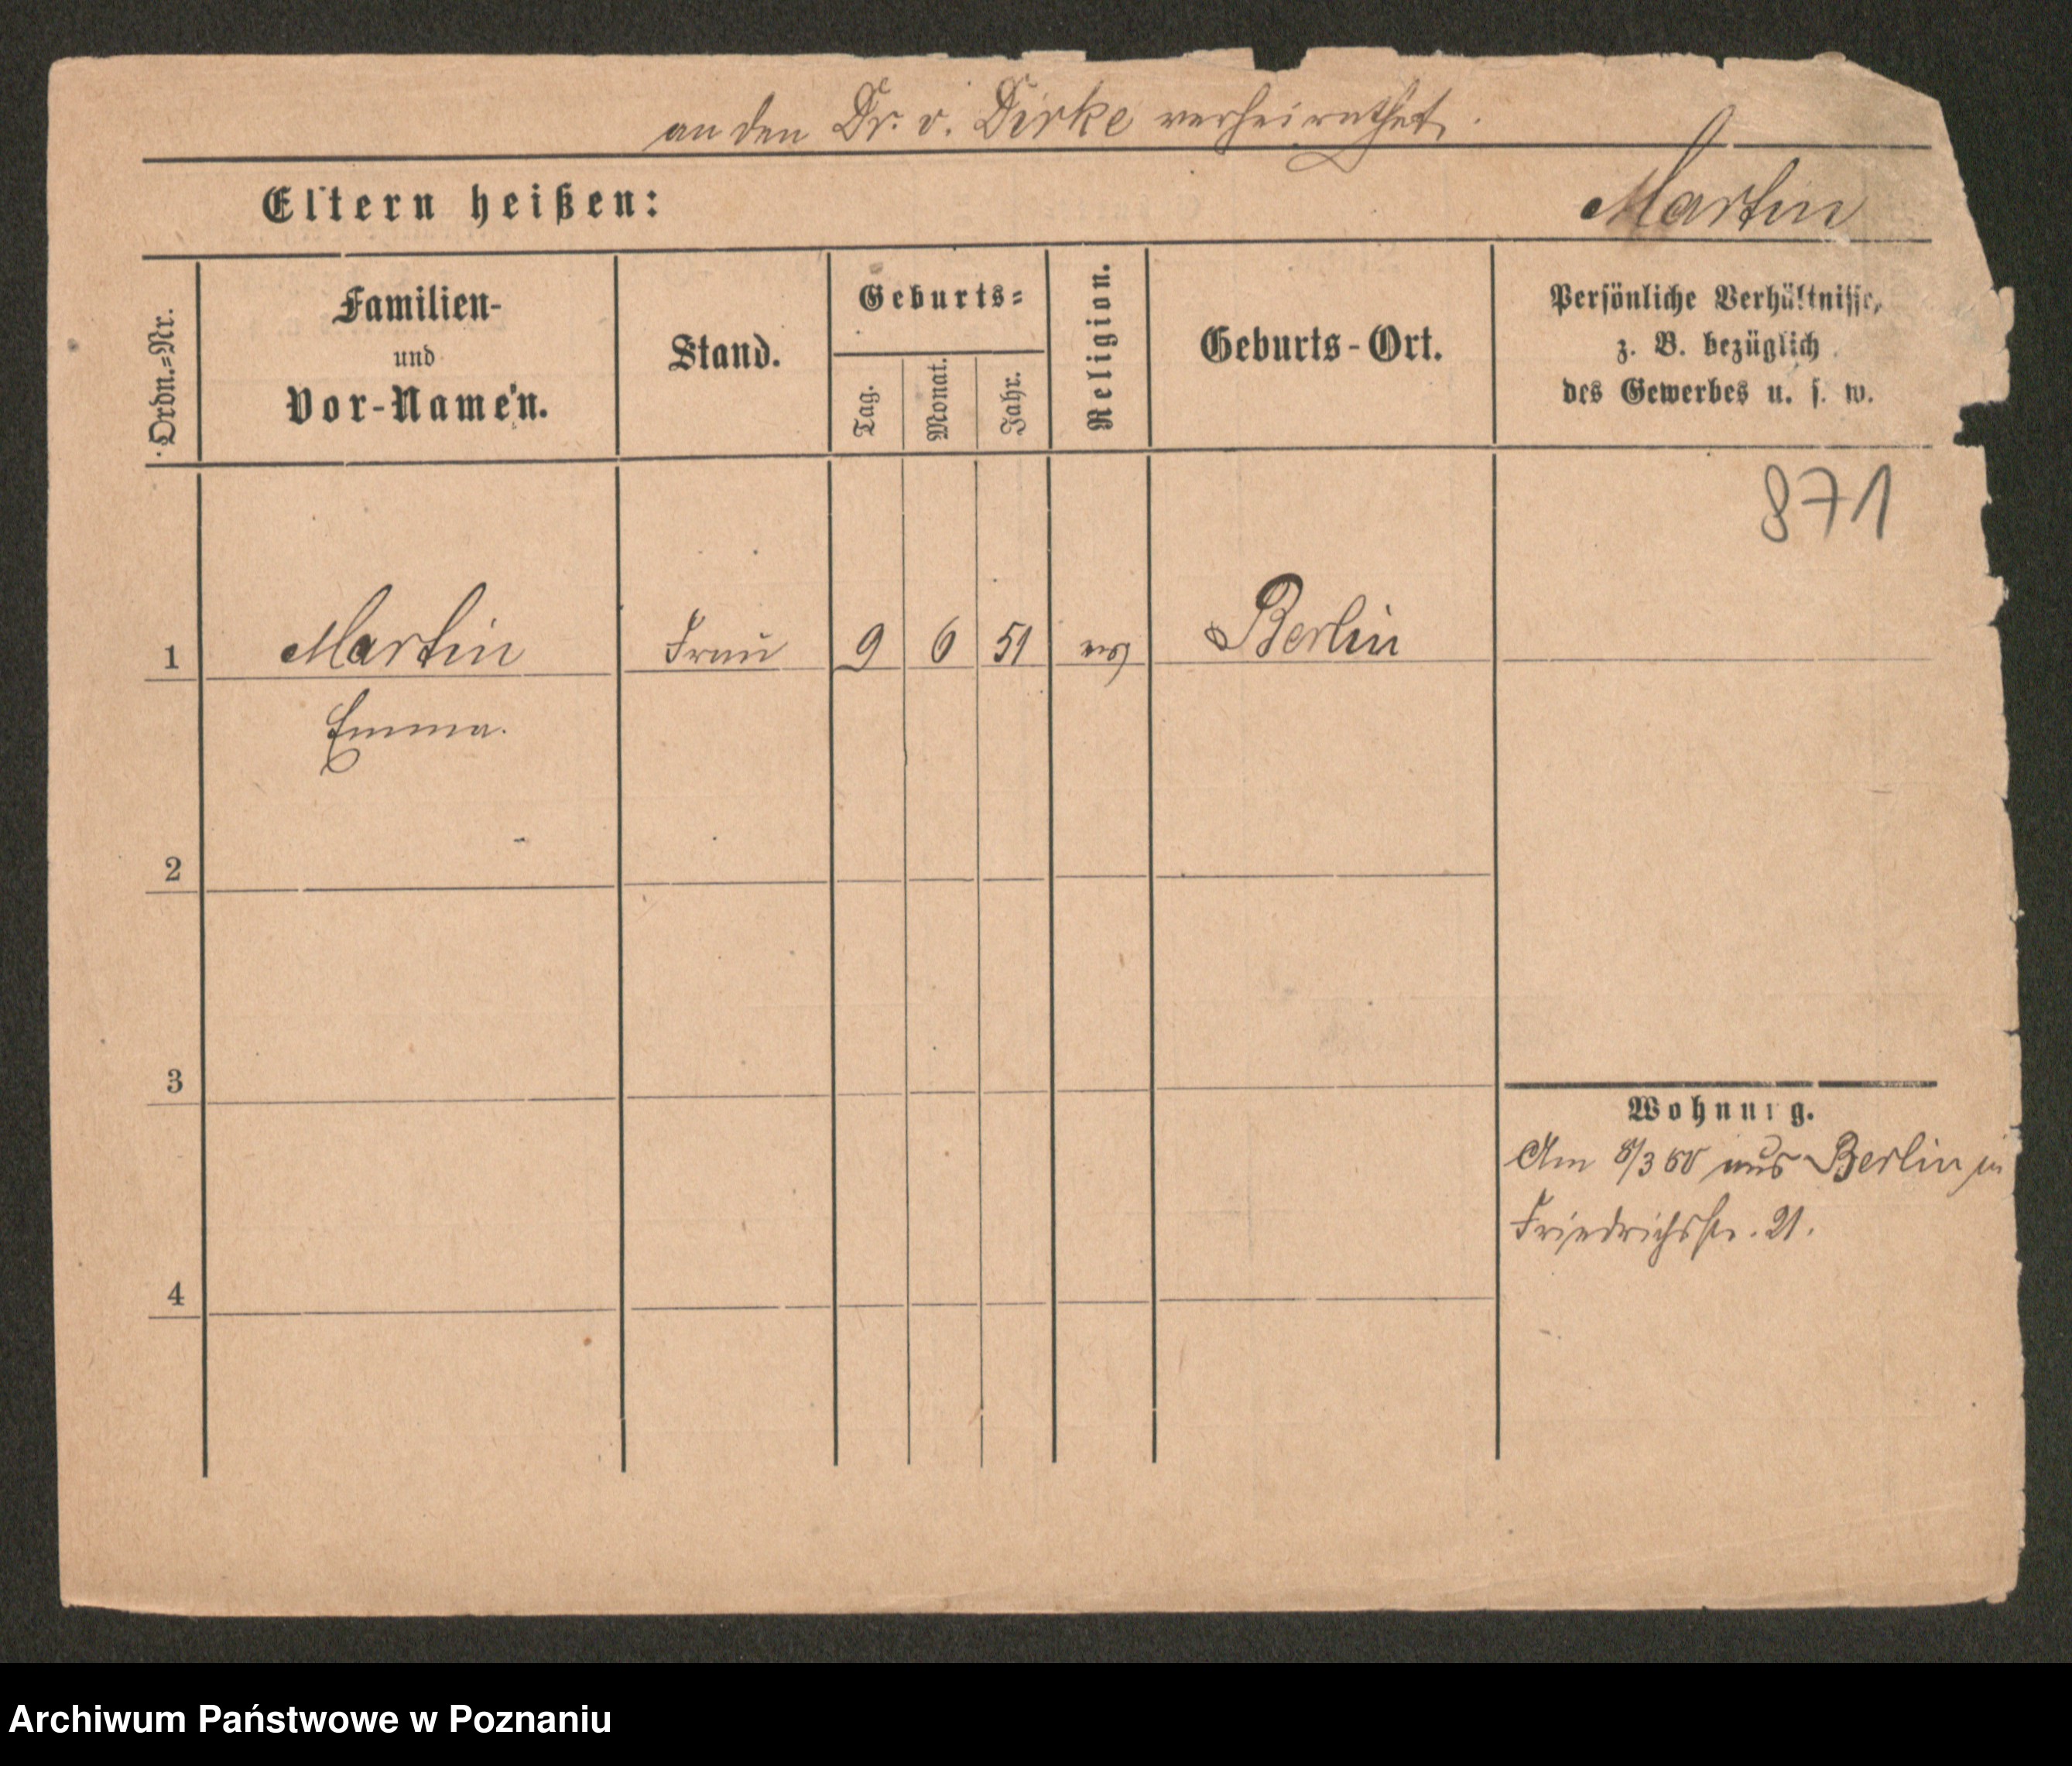 an den Dr. v. Dirke verheirathet.
Eltern heißen:
Martin
Ordn.=Nr.
Familien-
und
Vor-Namen.
Stand.
Geburts=
Tag.
Monat.
Jahr.
Religion.
Geburts-Ort.
Persönliche Verhältnisse,
z. B. bezüglich
des Gewerbes u. s. w.
871
1 Martin Frau 9 6 51 ev Berlin
Emma.
2
3
Wohnung.
Am 8/3 80 aus Berlin in
Friedrichsstr. 21.
4
Archiwum Państwowe w Poznaniu